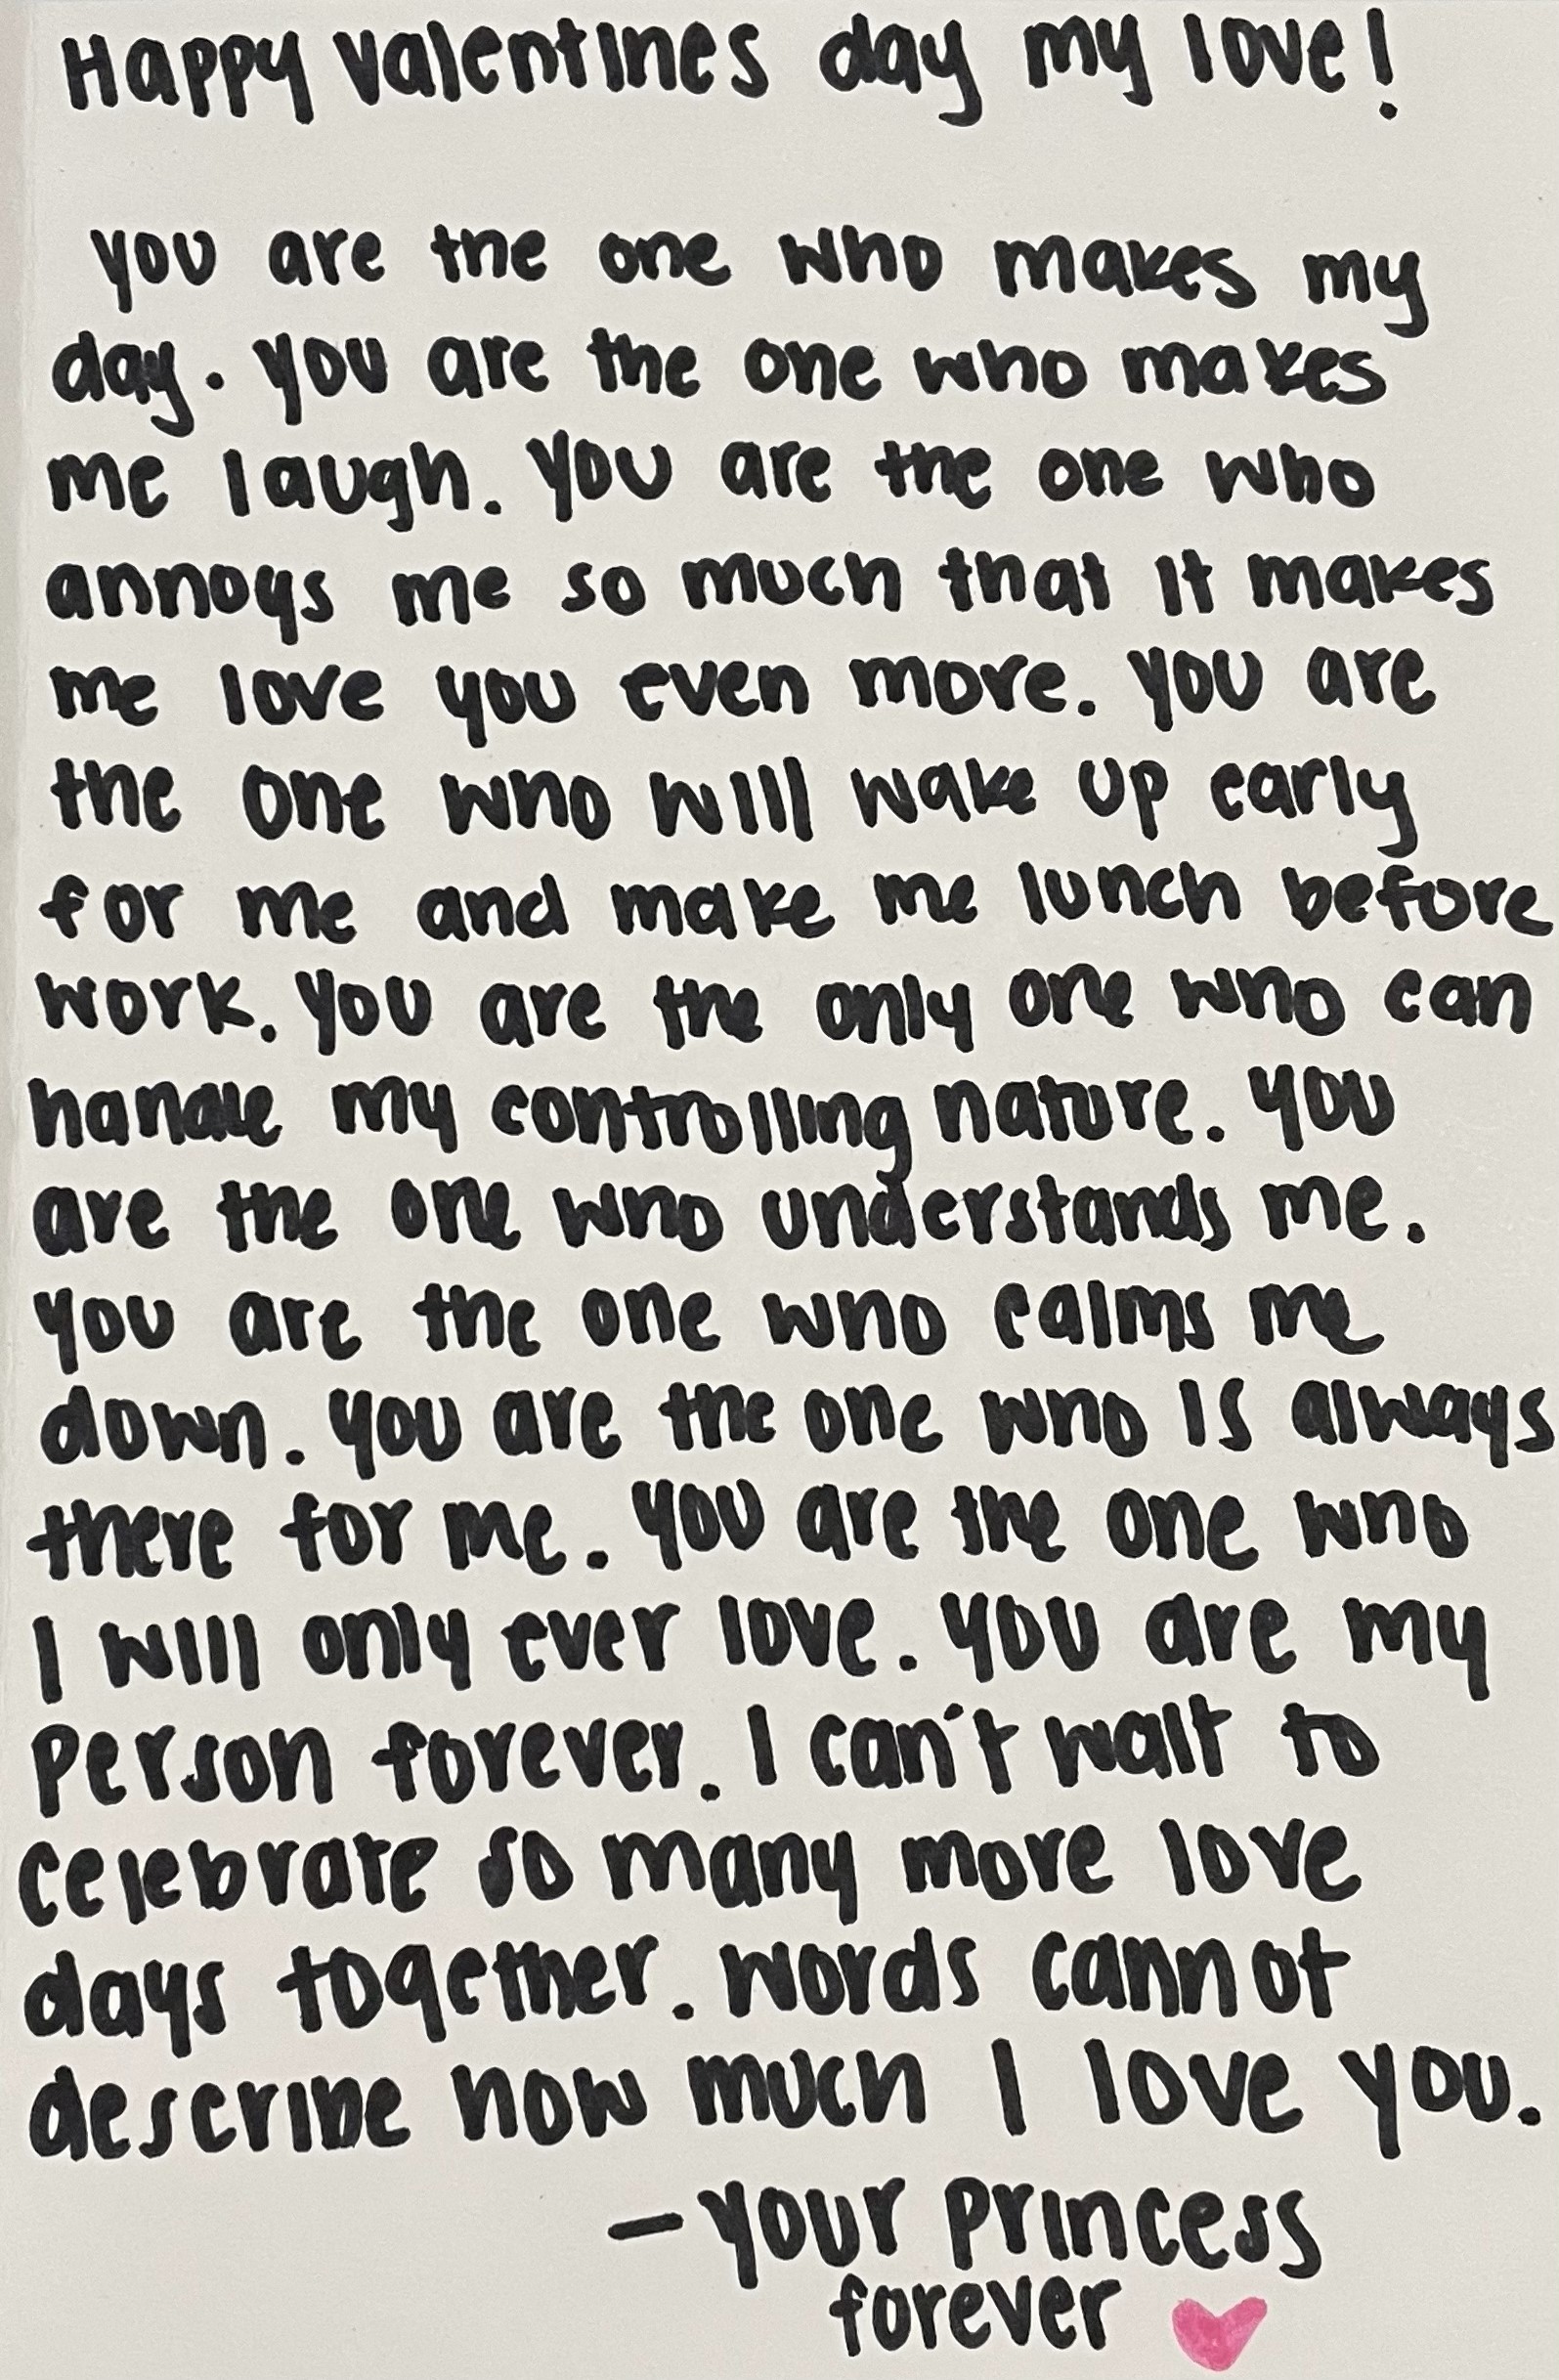 Happy valentines day my love!
you are the one who makes my
day. you are the one who makes
me laugh. you are the one who
annoys me so much that it makes
me love you even more. you are
the one who will wake up early
for me and make me lunch before
work. you are the only one who can
handle my controlling nature. you
are the one who understands me.
you are the one who calms me
down. you are the one who is always
there for me. you are the one who
I will only ever love. you are my
person forever. I can't wait to
celebrate so many more love
days together. words cannot
describe how much I love you.
- your princess
forever